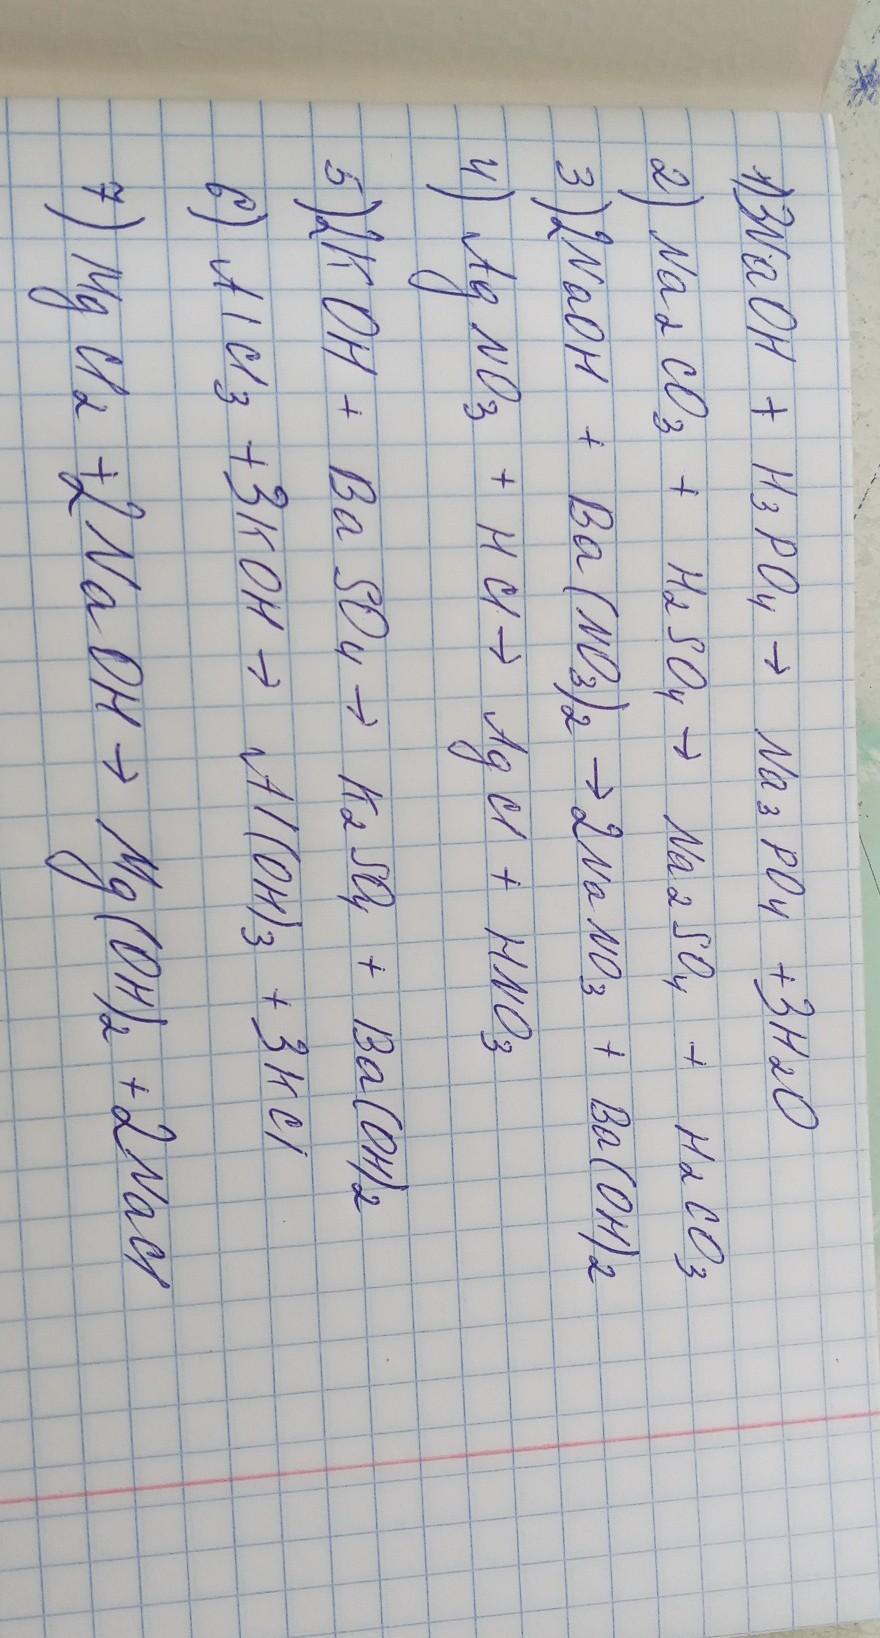 1) 3NaOH + H3PO4 → Na3PO4 + 3H2O
2) Na2CO3 + H2SO4 → Na2SO4 + H2CO3
3) 2NaOH + Ba(NO3)2 → 2NaNO3 + Ba(OH)2
4) AgNO3 + HCl → AgCl + HNO3
5) 2KOH + BaSO4 → K2SO4 + Ba(OH)2
6) AlCl3 + 3KOH → Al(OH)3 + 3KCl
7) MgCl2 + 2NaOH → Mg(OH)2 + 2NaCl